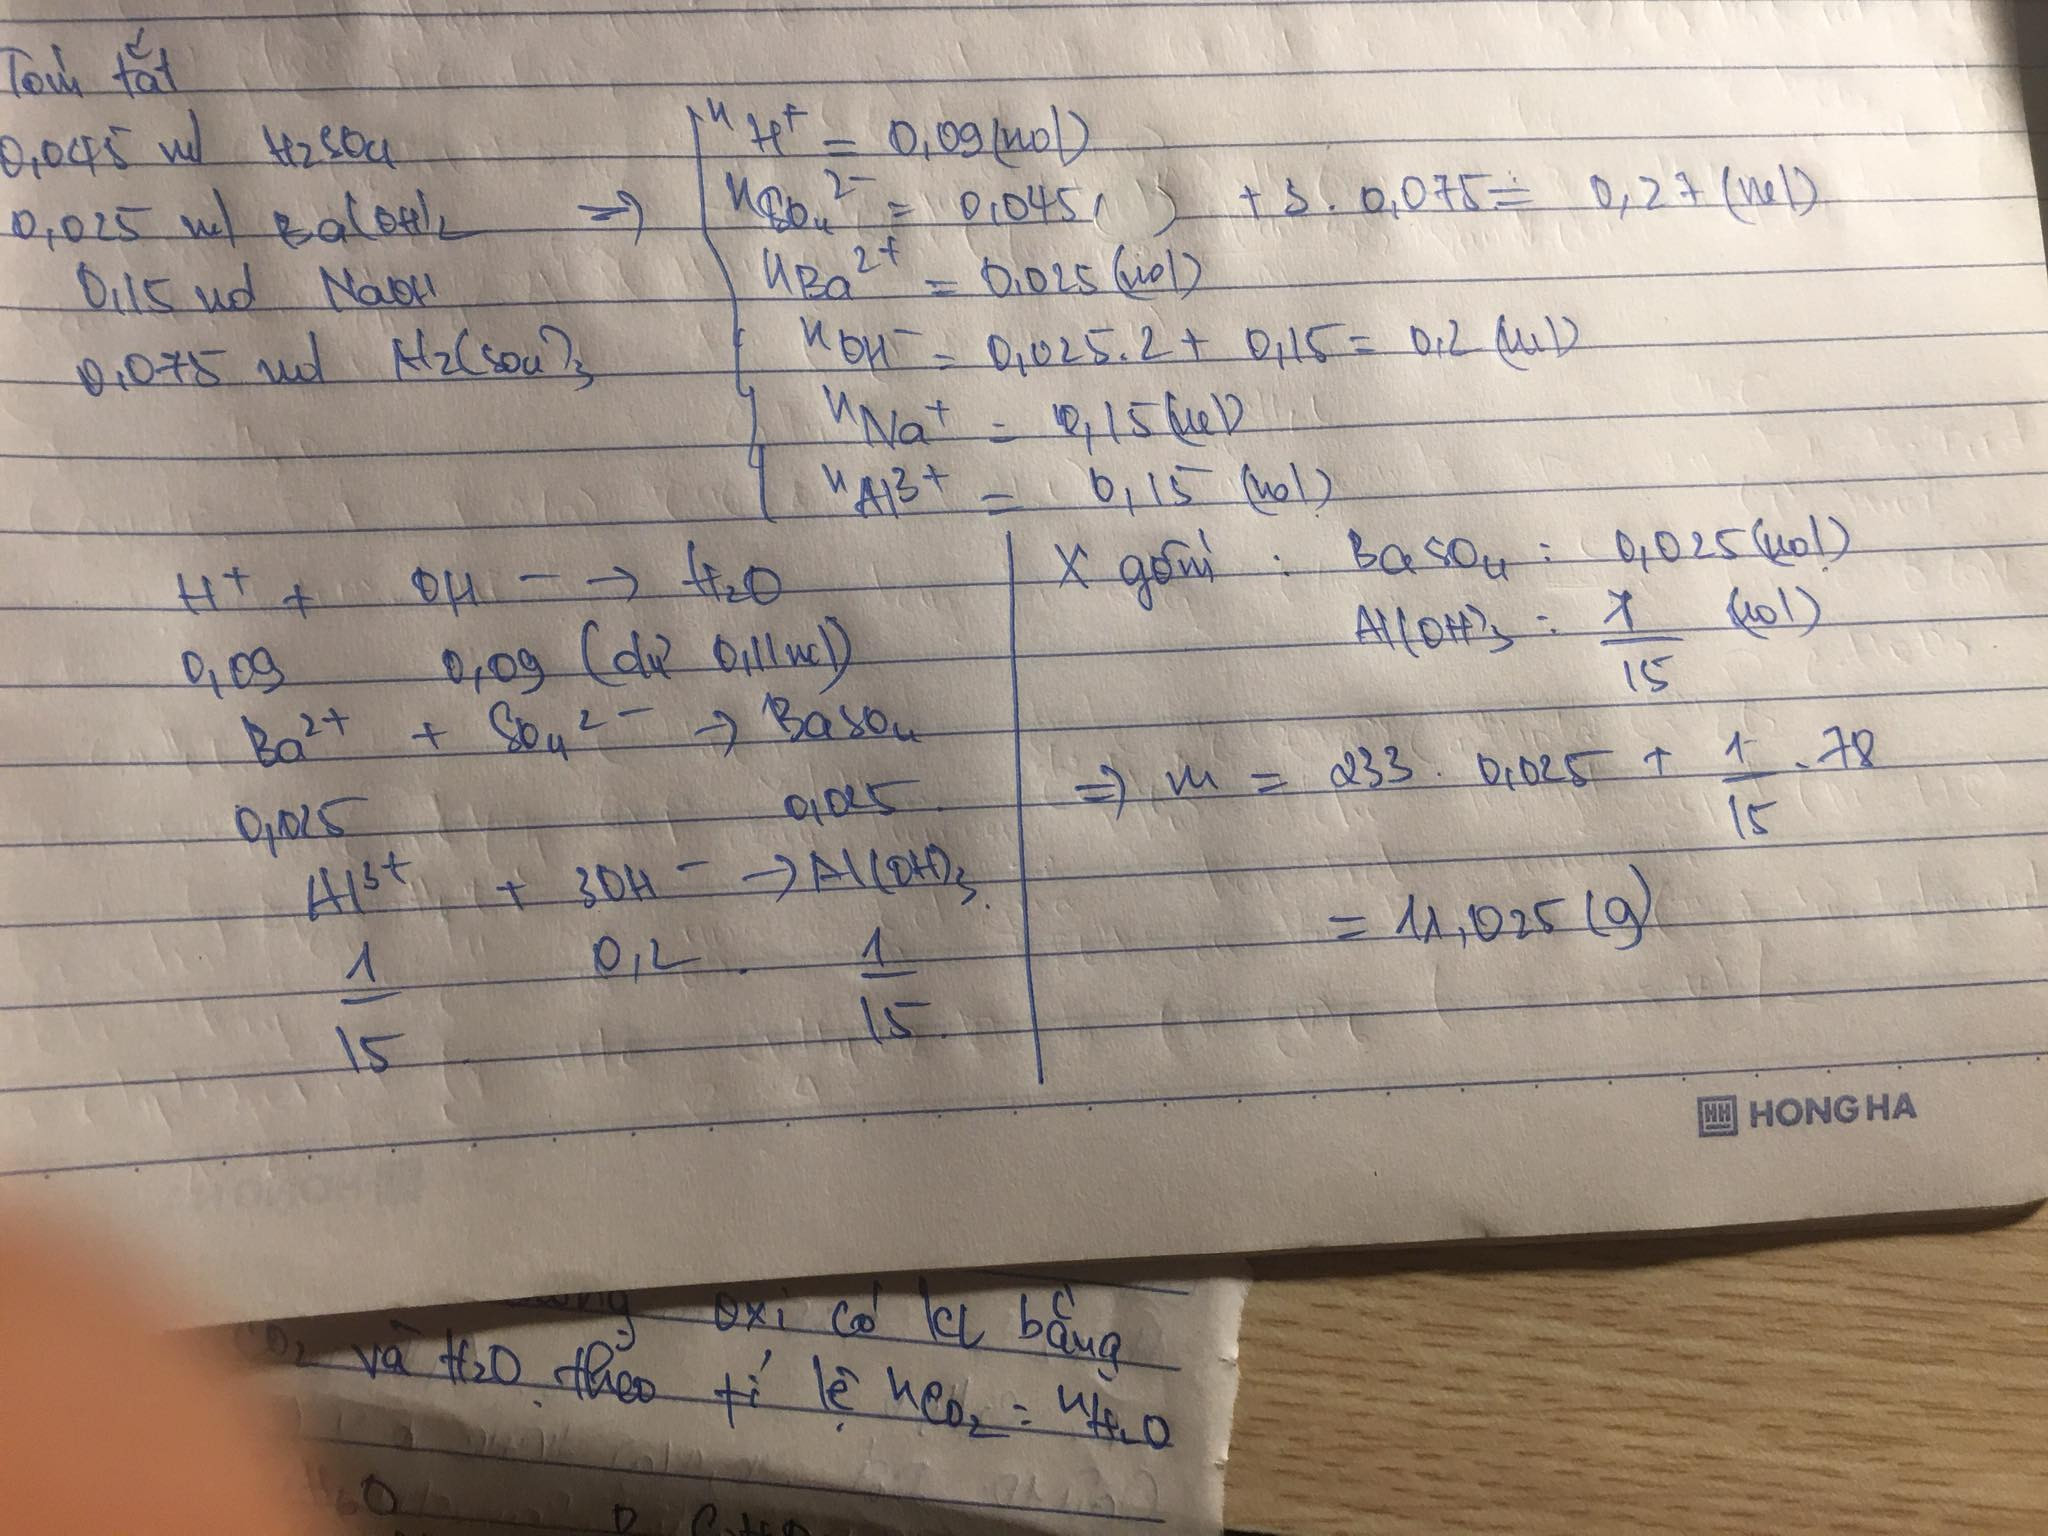 Tóm tắt
0,045 mol H2SO4
0,025 mol Ba(OH)2 =>
0,15 mol NaOH
0,075 mol Al2(SO4)3
nH+ = 0,09 (mol)
nSO4 2- = 0,045 ( ) + 3. 0,075 = 0,27 (mol)
nBa2+ = 0,025 (mol)
nOH- = 0,025.2 + 0,15 = 0,2 (mol)
nNa+ = 0,15 (mol)
nAl3+ = 0,15 (mol)
H+ + OH- → H2O
0,09 0,09 (dư 0,11 mol)
Ba2+ + SO4 2- → BaSO4
0,025 0,025
Al3+ + 3OH- → Al(OH)3
1/15 0,2 1/15
X gồm : BaSO4 : 0,025 (mol)
Al(OH)3 : 1/15 (mol)
=> m = 233. 0,025 + 1/15 .78
= 11,025 (g)
HH HONG HA
oxi có kl bằng
CO2 và H2O theo tỉ lệ nCO2 = nH2O